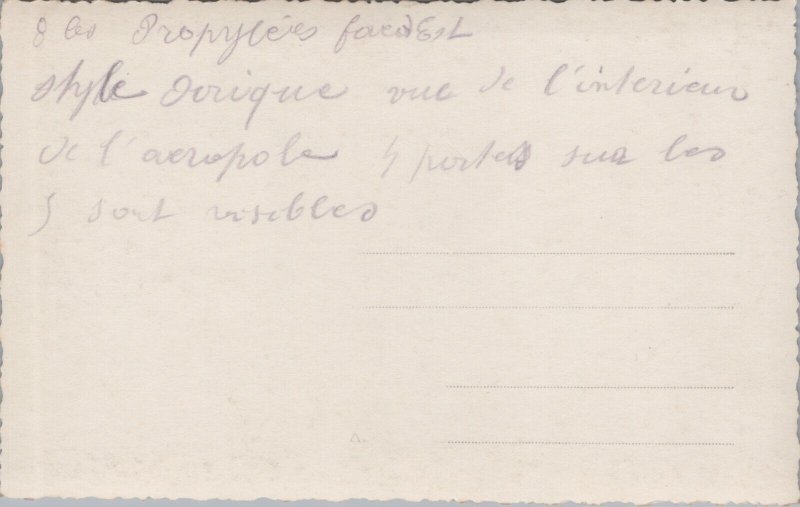 8 les Propylées face Est
style dorique vue de l'interieur
de l'acropole 4 portes sur les
5 sont visibles